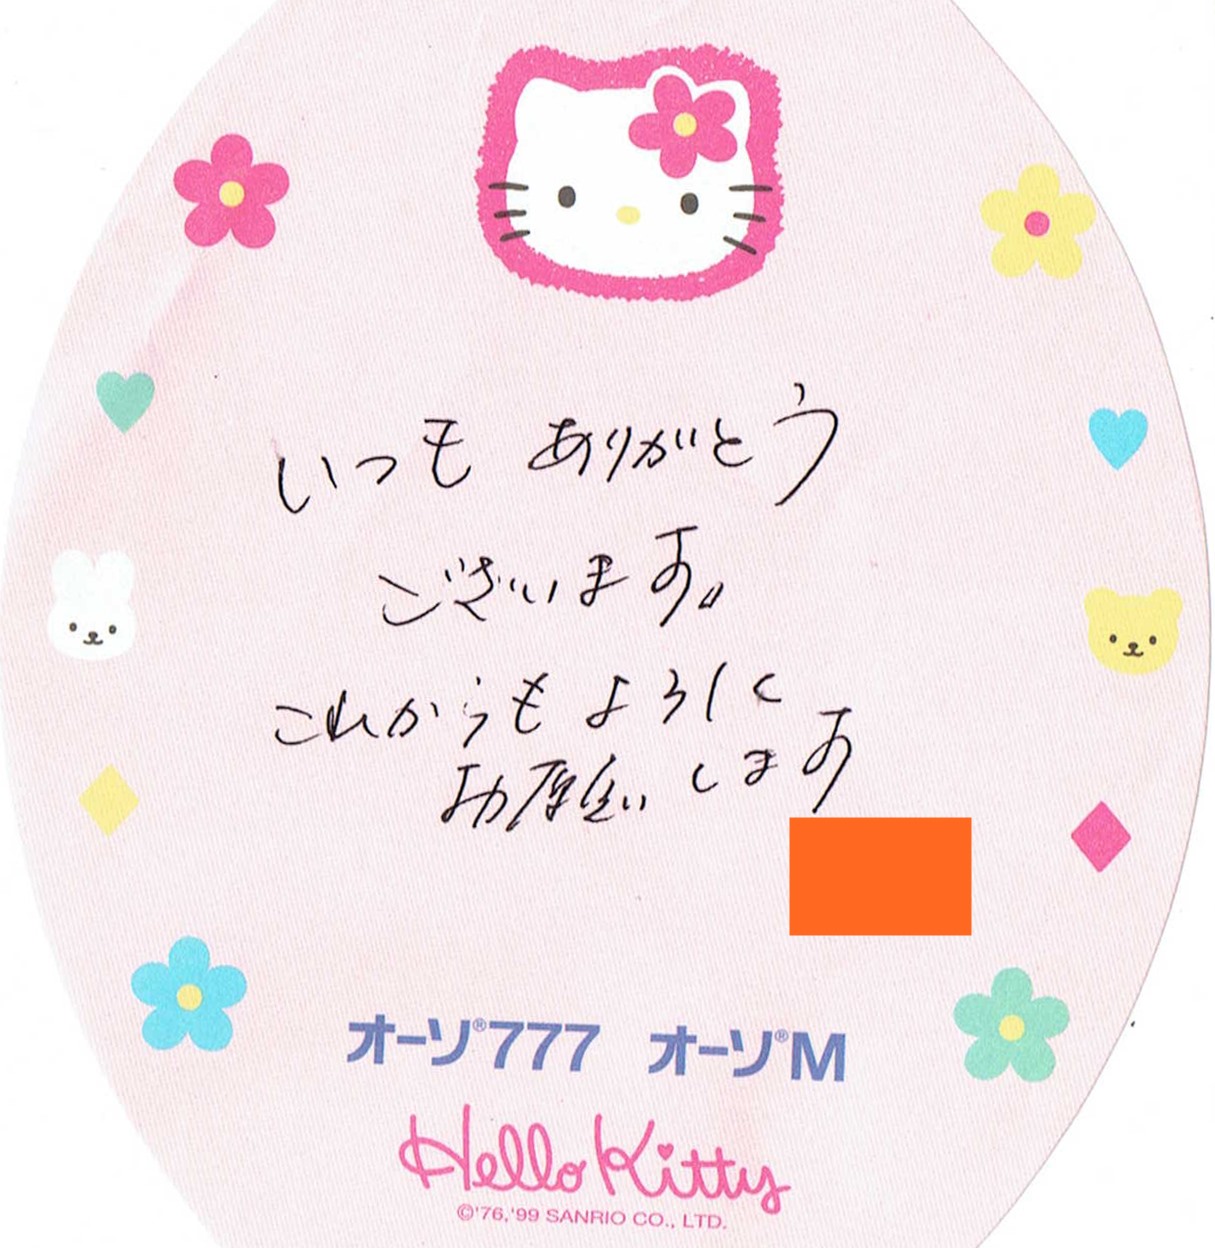 いつも ありがとう
ございます。
これからもよろしく
お願いします
オーソ®777 オーソ®M
Hello Kitty
©'76,'99 SANRIO CO., LTD.